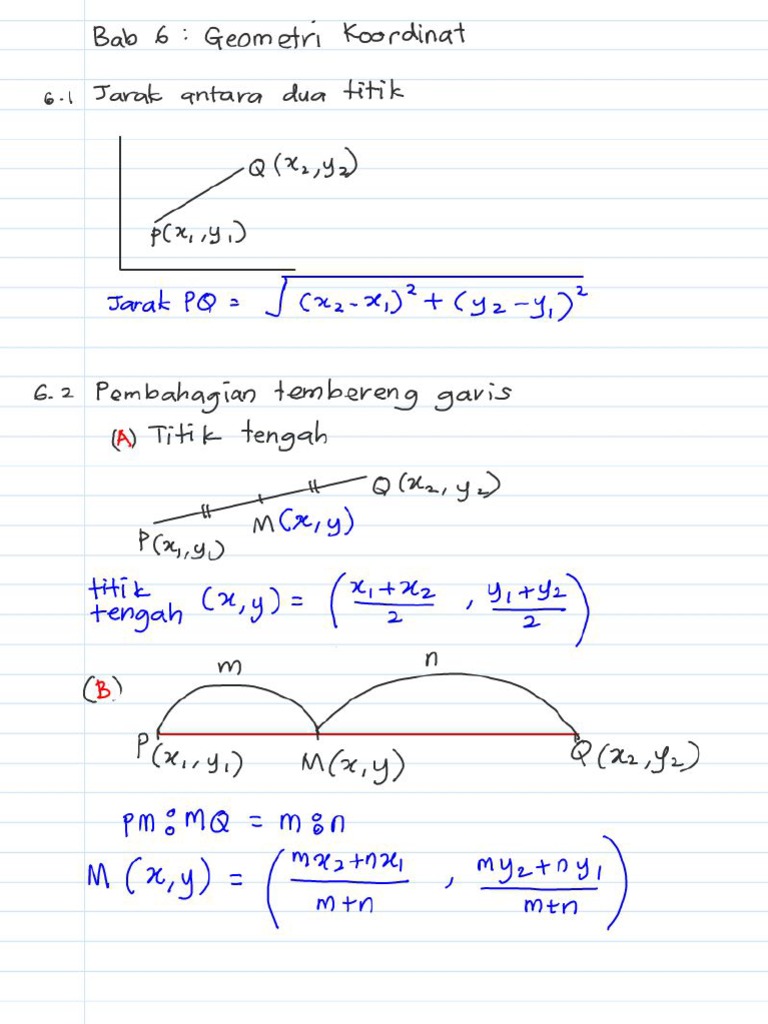 Bab 6 : Geometri Koordinat
6.1 Jarak antara dua titik
Q(x₂,y₂)
P(x₁,y₁)
Jarak PQ = √(x₂-x₁)² + (y₂-y₁)²
6.2 Pembahagian tembereng garis
(A) Titik tengah
Q(x₂,y₂)
M(x,y)
P(x₁,y₁)
titik tengah (x,y) = (x₁+x₂/2 , y₁+y₂/2)
m n
(B)
P(x₁,y₁) M(x,y) Q(x₂,y₂)
PM:MQ = m:n
M(x,y) = (mx₂+nx₁/m+n , my₂+ny₁/m+n)